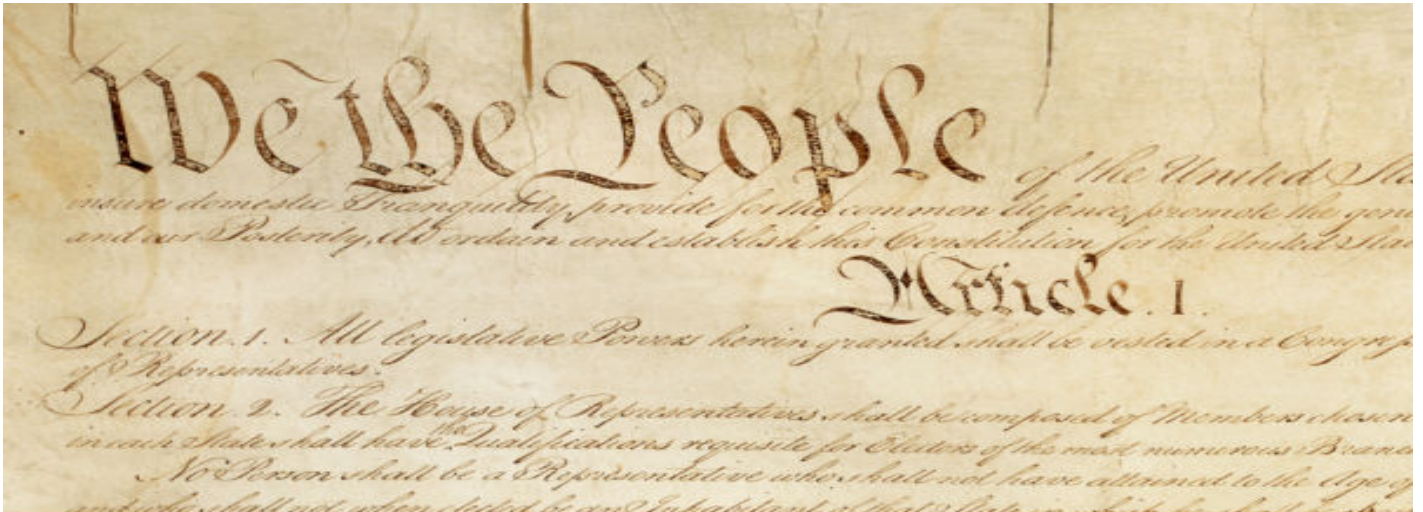 We the People of the United Sta
insure domestic Tranquility, provide for the common defence, promote the gen
and our Posterity, do ordain and establish this Constitution for the United Sta
Article. I.
Section. 1. All legislative Powers herein granted shall be vested in a Congre
of Representatives.
Section. 2. The House of Representatives shall be composed of Members chosen
in each State shall have the Qualifications requisite for Electors of the most numerous Branc
No Person shall be a Representative who shall not have attained to the Age of
and who shall not, when elected, be an Inhabitant of that State in which he shall